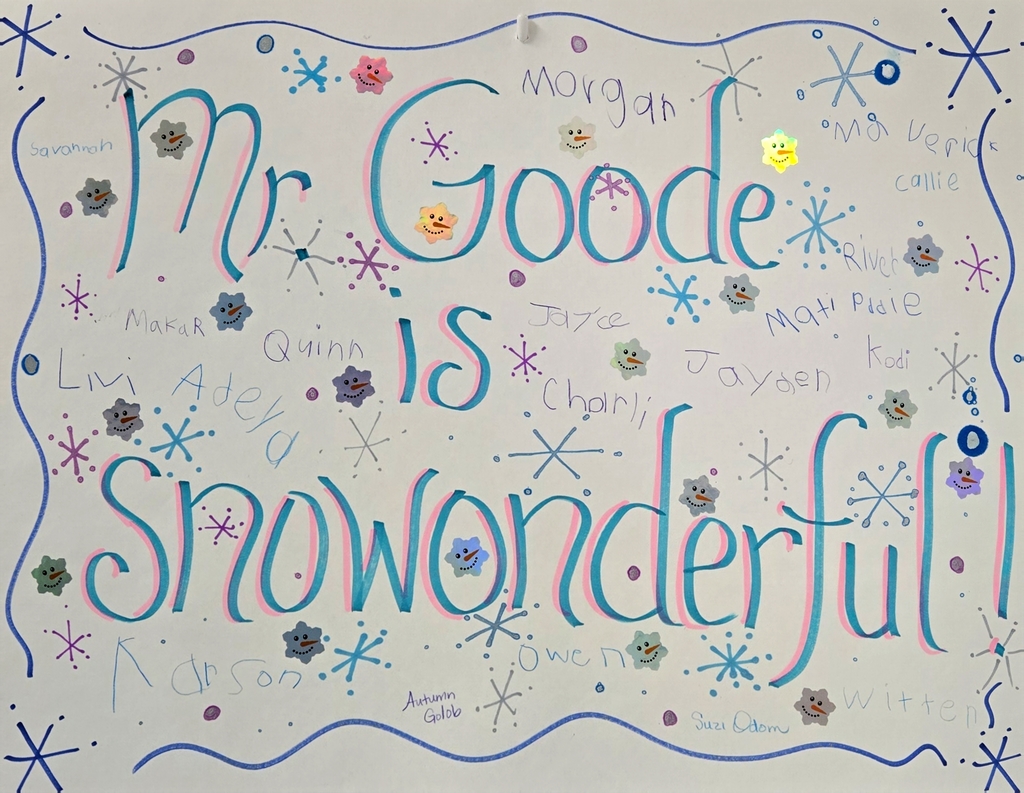 Mr Goode
is
Snowonderful!
Morgan
Savannah
Maverick
Callie
River
Makar
Quinn
Jayce
Mati
Livi
Adelyd
Charli
Jayden
Kodi
Karson
Owen
Witten
Autumn
Golob
Suzi Odom